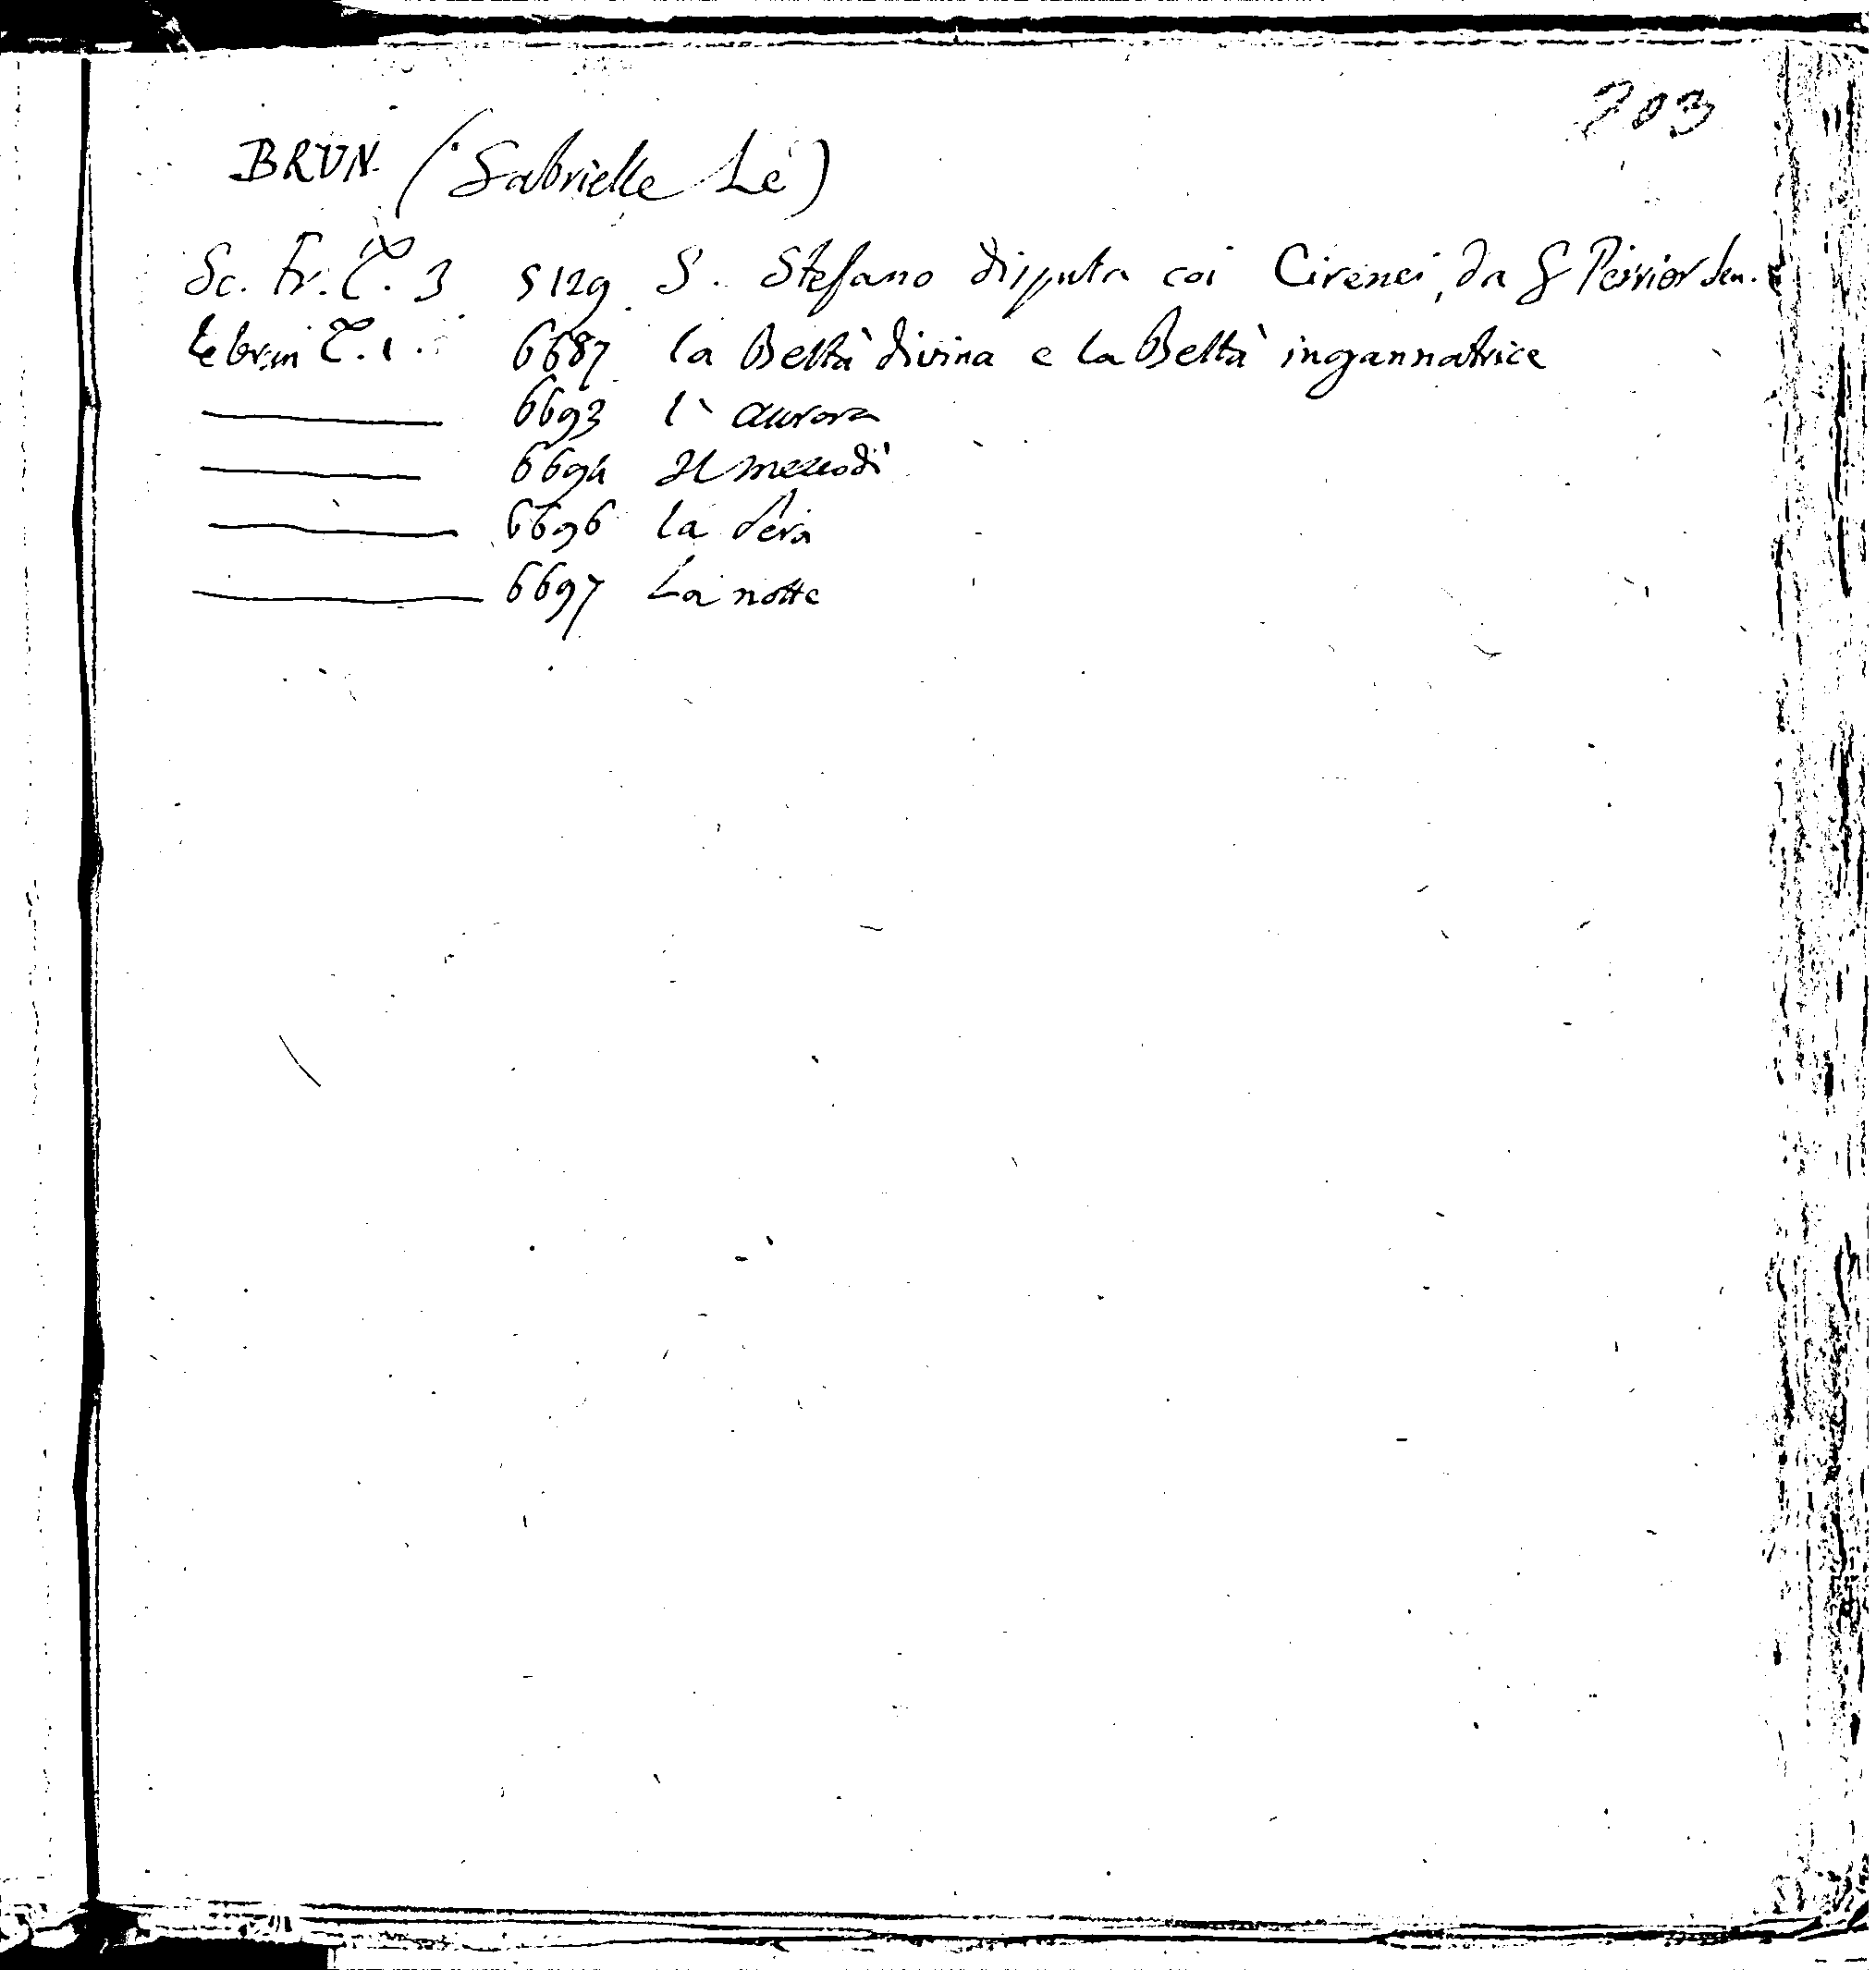 203
BRUN. (Gabrielle Le)
Sc. Fr. T. 3 5129 S. Stefano disputa coi Cirenei, da G Perrier Sen.
Le brun T. 1. 6687 la Beltà divina e la Beltà ingannatrice
6693 l'aurora
6694 Il mezzodì
6696 la Sera
6697 La notte